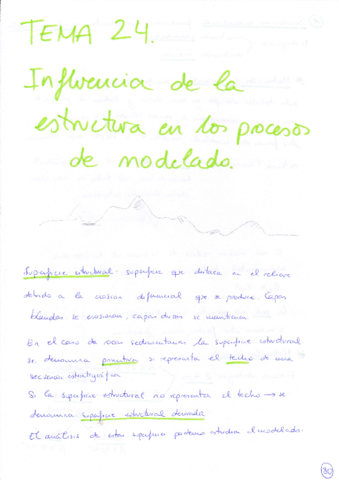 TEMA 24.
Influencia de la
estructura en los procesos
de modelado.
Superficie estructural: superficie que destaca en el relieve
debido a la erosión diferencial que se produce. Capas
blandas se erosionan, capas duras se mantienen.
En el caso de rocas sedimentarias, la superficie estructural
se denomina primitiva si representa el techo de una
secuencia estratigráfica.
Si la superficie estructural no representa el techo → se
denomina superficie estructural derivada
El análisis de estas superficies podemos estudiar el modelado.
30